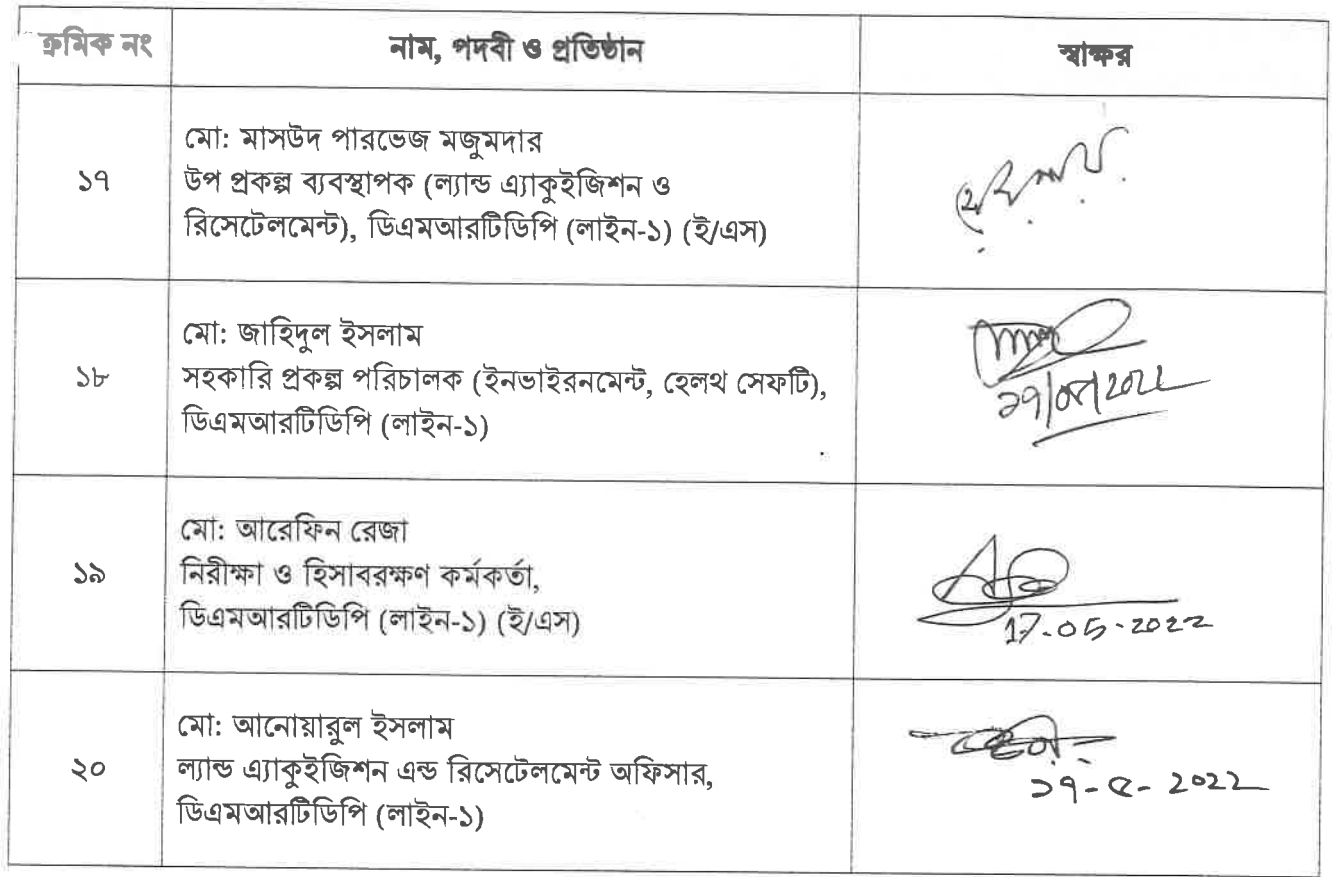 ক্রমিক নং
নাম, পদবী ও প্রতিষ্ঠান
স্বাক্ষর
১৭
মো: মাসউদ পারভেজ মজুমদার
উপ প্রকল্প ব্যবস্থাপক (ল্যান্ড এ্যাকুইজিশন ও
রিসেটেলমেন্ট), ডিএমআরটিডিপি (লাইন-১) (ই/এস)
১৮
মো: জাহিদুল ইসলাম
সহকারি প্রকল্প পরিচালক (ইনভাইরনমেন্ট, হেলথ সেফটি),
ডিএমআরটিডিপি (লাইন-১)
১৯
মো: আরেফিন রেজা
নিরীক্ষা ও হিসাবরক্ষণ কর্মকর্তা,
ডিএমআরটিডিপি (লাইন-১) (ই/এস)
17-05-2022
২০
মো: আনোয়ারুল ইসলাম
ল্যান্ড এ্যাকুইজিশন এন্ড রিসেটেলমেন্ট অফিসার,
ডিএমআরটিডিপি (লাইন-১)
১৭-৫-2022